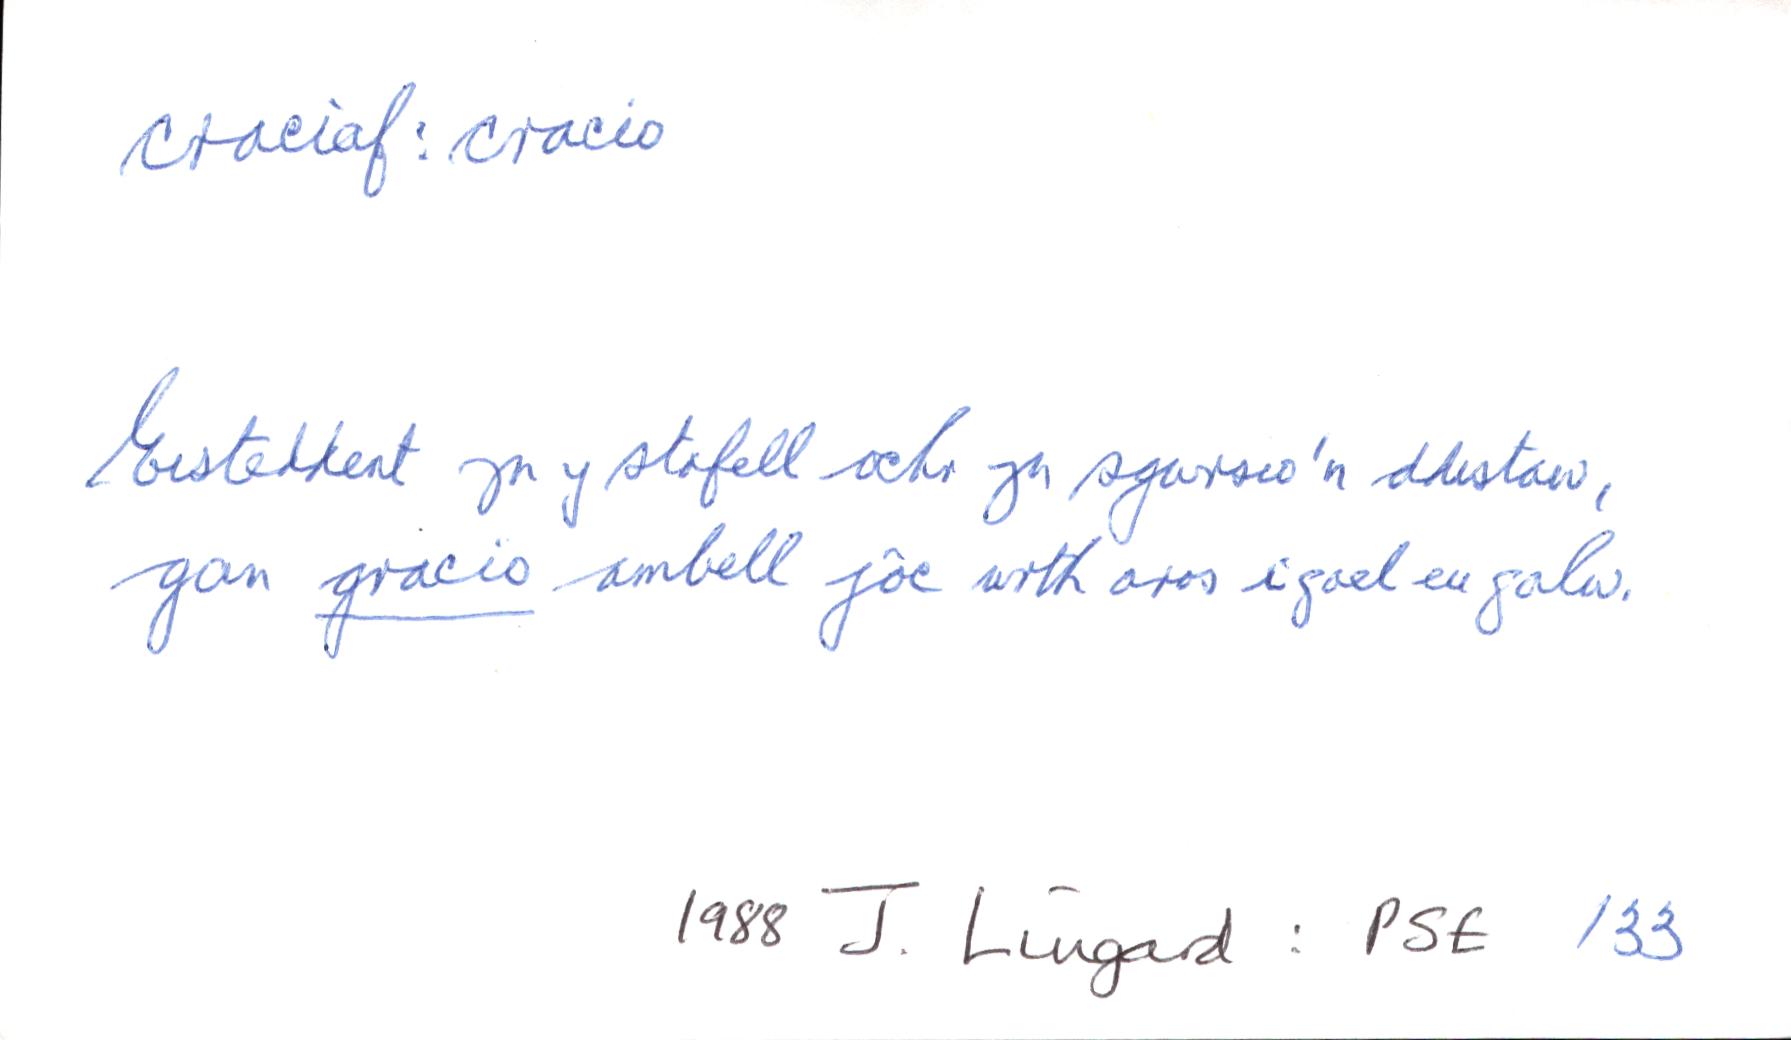 craciaf: cracio
Eisteddent yn y stafell ochr yn sgwrsio'n ddistaw,
gan gracio ambell jôc wrth aros i gael eu galw.
1988 J. Lingard : PSE 133